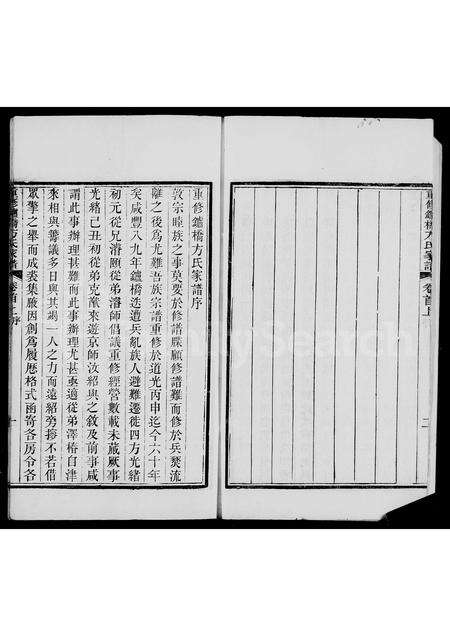 重修鑪橋方氏家譜
卷首上
二
重修鑪橋方氏家譜序
敦宗睦族之事莫要於修譜牒顧修譜難而修於兵燹流
離之後為尤難吾族宗譜重修於道光丙申迄今六十年
矣咸豐八九年鑪橋迭遭兵亂族人避難遷徙四方光緒
初元從兄濬頤從弟濬師倡議重修經營數載未蕆厥事
光緒己丑初從弟克猷來遊京師汝紹與之敘及前事咸
謂此事辦理甚難而此事辦理尤甚亟適從弟澤椿自津
來相與籌議多日與其竭一人之力而遠紹旁搜不若借
眾擎之舉而成裘集厥因創為履歷格式函寄各房令各
重修鑪橋方氏家譜
卷首上序
十